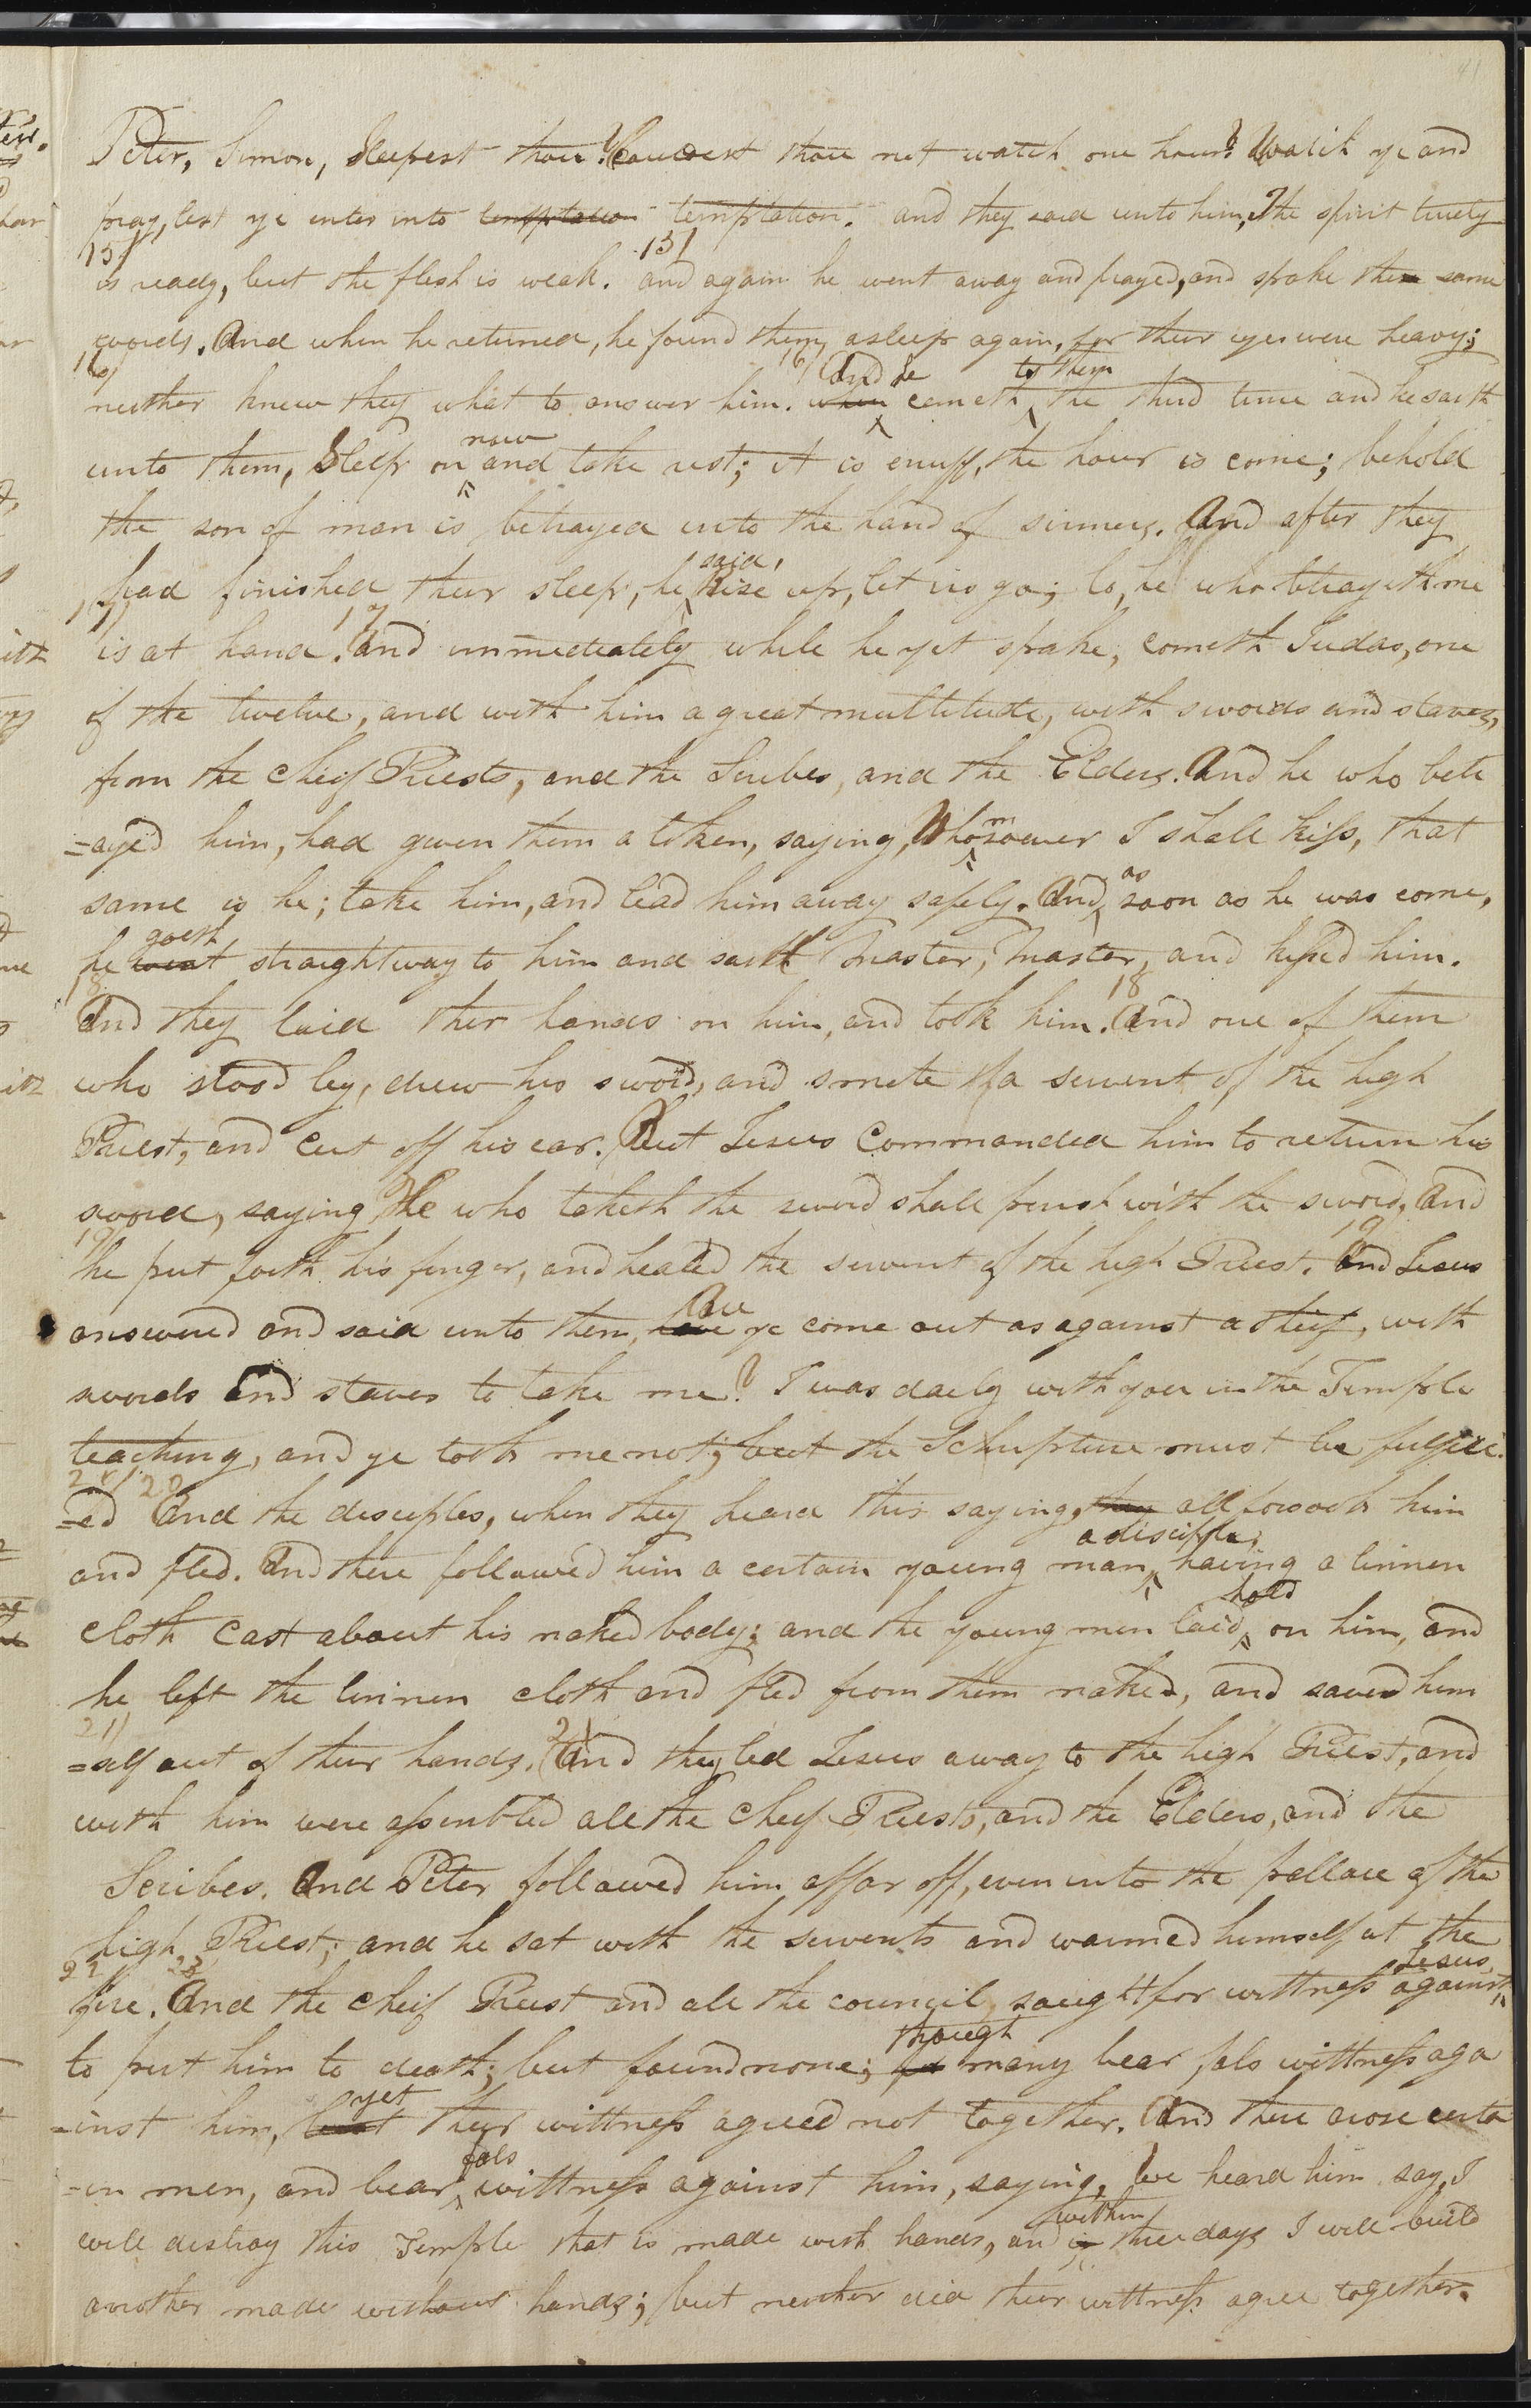 41
Peter, Simon, Sleepest thou? Couldest thou not watch one hour? Watch ye and
pray, lest ye enter into temptation temptation. and they said unto him, The spirit truely
15/ 15/
is ready, but the flesh is weak. and again he went away and prayed, and spake the same
words. And when he returned, he found them asleep again, for their eyes were heavy;
16/ 16/ And he to them
neither knew they what to answer him. when cometh the third time and he saith
now
unto them, Sleep on and take rest; it is enuff, the hour is come; behold
the son of man is betrayed into the hand of sinners. And after they
said,
had finished their sleep, he Rise up, let us go; lo, he who betrayeth me
17/ 17
is at hand. And immediately while he yet spake, cometh Judas, one
of the twelve, and with him a great multitude, with swords and staves,
from the cheif Priests, and the Scribes, and the Elders. And he who betr
=ayed him, had given them a token, saying, Whomsoever I shall kiss, that
as
same is he; take him, and lead him away safely. And soon as he was come,
goeth
he went straightway to him and saith Master, Master, and kissed him.
18 18
And they laid their hands on him, and took him. And one of them
who stood by, drew his sword, and smote a servent of the high
Priest, and cut off his ear. But Jesus Commanded him to return his
sword, saying, He who taketh the sword shall perish with the sword, And
19 19
he put forth his finger, and healed the servent of the high Priest. And Jesus
Are
answered and said unto them, have ye come out as against a theif, with
swords and staves to take me? I was daily with you in the Temple
teaching, and ye took me not; but the Schripture must be fulfill
20/ 20
=ed And the disciples, when they heard this saying, they all forsook him
a disciple,
and fled. And there followed him a certain young man, having a linnen
hold
cloth cast about his naked body; and the young men laid on him, and
he left the linnen cloth and fled from them naked, and saved him
21/ 21
=self out of their hands. And they led Jesus away to the high Priest, and
with him were assembled all the cheif Priests, and the Elders, and the
Scribes. And Peter followed him affar off, even into the pallace of the
high Priest; and he sat with the servents and warmed himself at the
22 22 Jesus,
fire. And the cheif Priest and all the council, saught for wittness against
though
to put him to death; but found none; for many bear fals wittness aga
yet
=inst him, but their wittness agreed not together. And there arose certa
fals
=in men, and bear wittness against him, saying, We heard him say, I
within
will destroy this Temple that is made with hands, and in three days I will build
another made without hands; but neither did their wittness agree together.